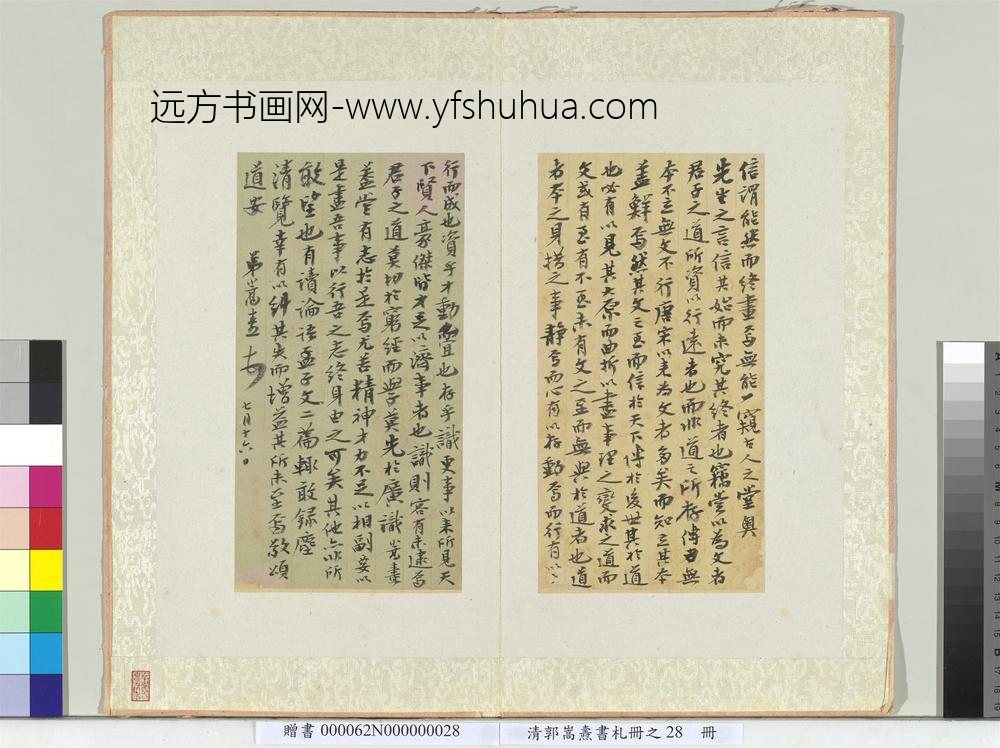 远方书画网-www.yfshuhua.com
信謂能然而終畫焉無能一窺古人之堂奧
先生之言信其始而未究其終者也竊嘗以為文者
君子之道所資以行遠者也而非道之所存傳曰無
本不立無文不行唐宋以來為文者多矣而知立其本
蓋鮮焉然其文之至而信於天下傳於後世其於道
也必有以見其大原而曲折以盡事理之變求之道而
文或有至有不至未有文之至而無與於道者也道
者本之身措之事靜焉而心有以存動焉而行有以
行而成也資乎才動資也存乎識更事以來所見天
下賢人豪傑皆才足以濟事者也識則容有未逮焉
君子之道莫切於窮經而學莫先於廣識
蓋嘗有志於是焉尤苦精神才力不足以相副妄以
是盡吾事以行吾之志終身由之可矣其他亦非所
敢望也有讀論語孟子文二篇輒敢錄塵
清覽幸有以糾其失而增益其所未至焉敬頌
道安
弟嵩燾
七月十六日
贈書 000062N000000028
清郭嵩燾書札冊之 28 冊